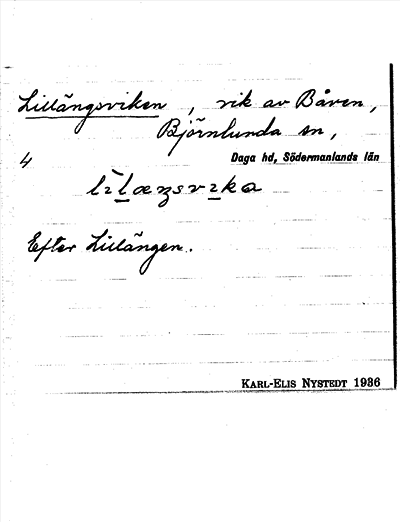 Lillängsviken, vik av Båven,
Björnlunda sn,
4 Daga hd, Södermanlands län
Efter Lillängen.
KARL-ELIS NYSTEDT 1936